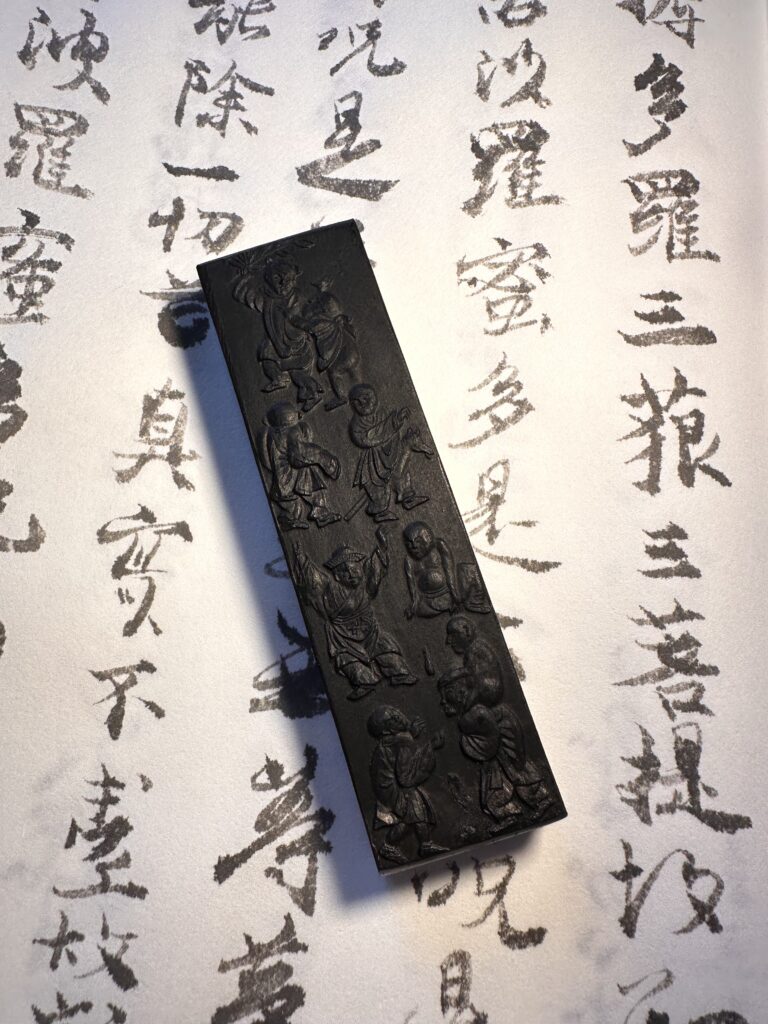 耨多羅三藐三菩提故
波羅蜜多是 咒是
咒是 等等
能除一切苦真實不虛故
波羅蜜多